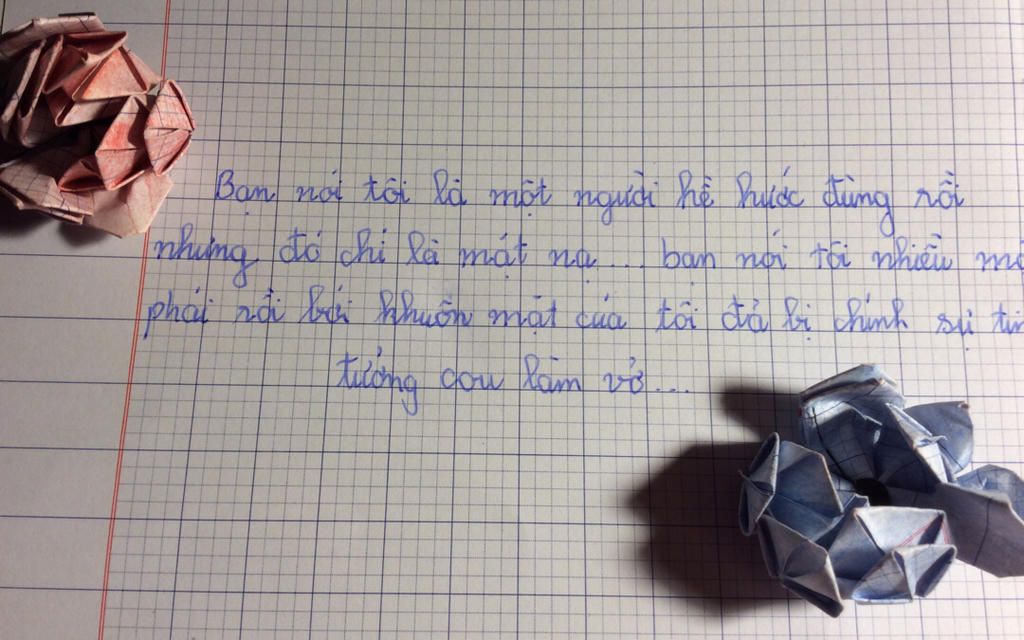 Bạn nói tôi là một người hề hước đúng rồi
nhưng đó chỉ là mặt nạ... bạn nói tôi nhiều
phải rồi bởi khuôn mặt của tôi đã bị chính sự tin
tưởng làm vỡ...